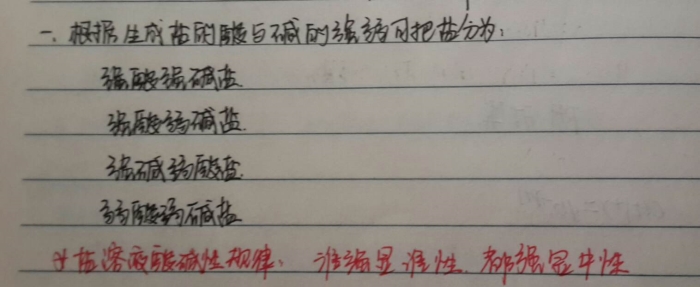 一、根据生成盐的酸与碱的强弱可把盐分为:
强酸强碱盐
强酸弱碱盐
强碱弱酸盐
弱酸弱碱盐
盐溶液酸碱性规律:谁强显谁性,都强显中性